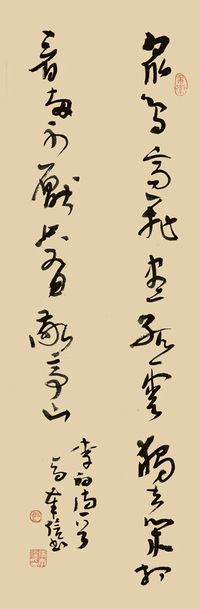 众鸟高飞尽孤云独去闲相
看两不厌只有敬亭山
李白诗一首